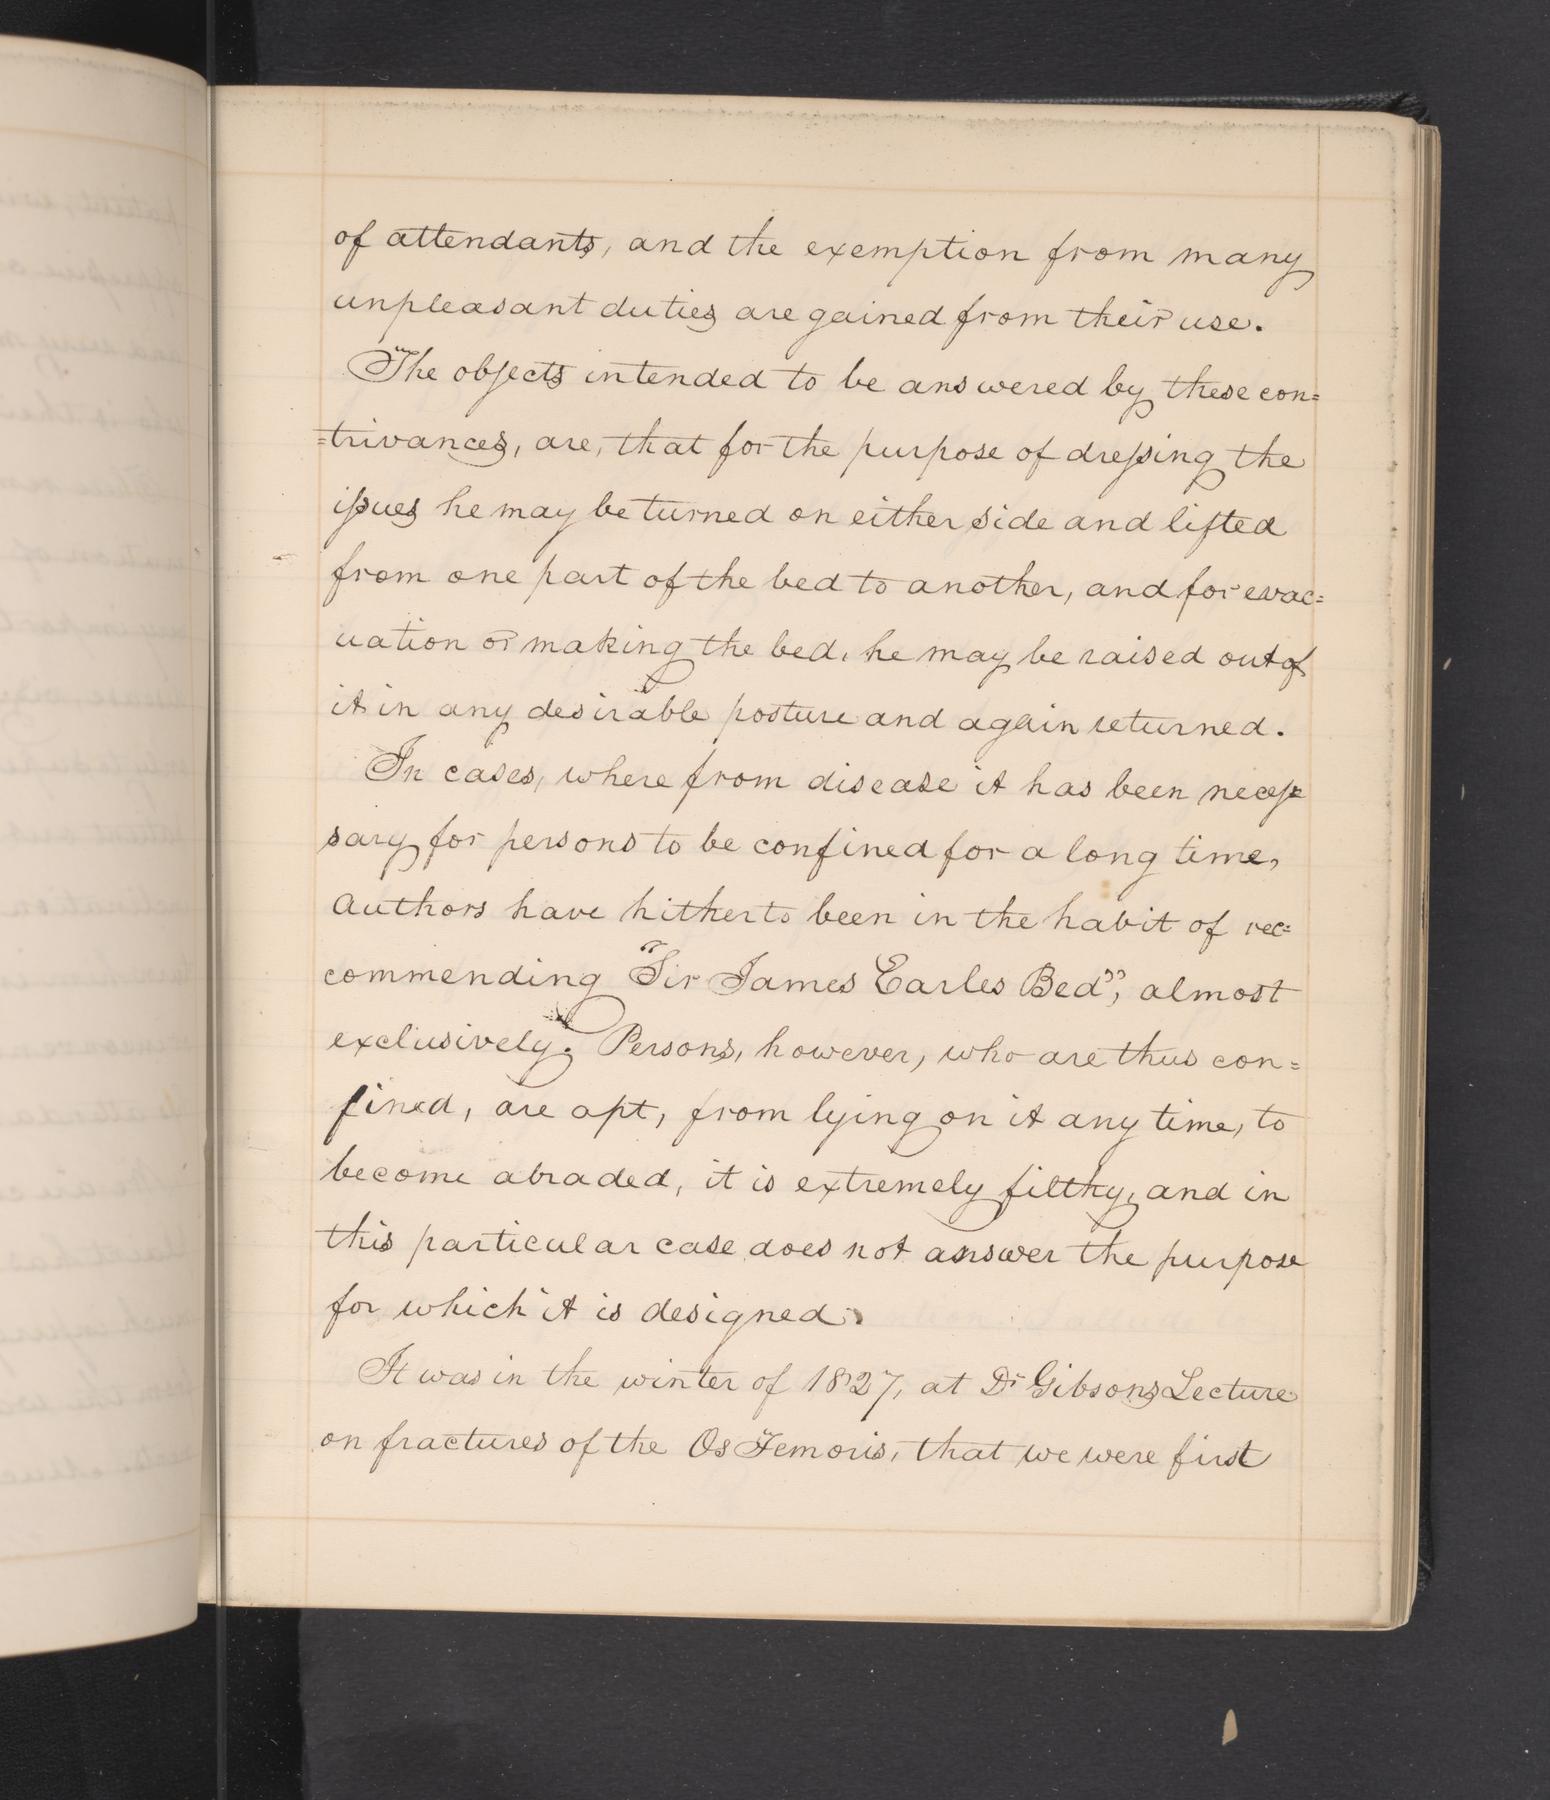 of attendants, and the exemption from many
unpleasant duties are gained from their use.
The objects intended to be answered by these con=
=trivances, are, that for the purpose of dressing the
issues he may be turned on either side and lifted
from one part of the bed to another, and for evac=
uation or making the bed, he may be raised out of
it in any desirable posture and again returned.
In cases, where from disease it has been neces=
sary for persons to be confined for a long time,
authors have hitherto been in the habit of rec=
commending "Sir James Earles Bed", almost
exclusively. Persons, however, who are thus con=
fined, are apt, from lying on it any time, to
become abraded, it is extremely filthy, and in
this particular case does not answer the purpose
for which it is designed.
It was in the winter of 1827, at Dr Gibsons Lecture
on fractures of the Os Femoris, that we were first